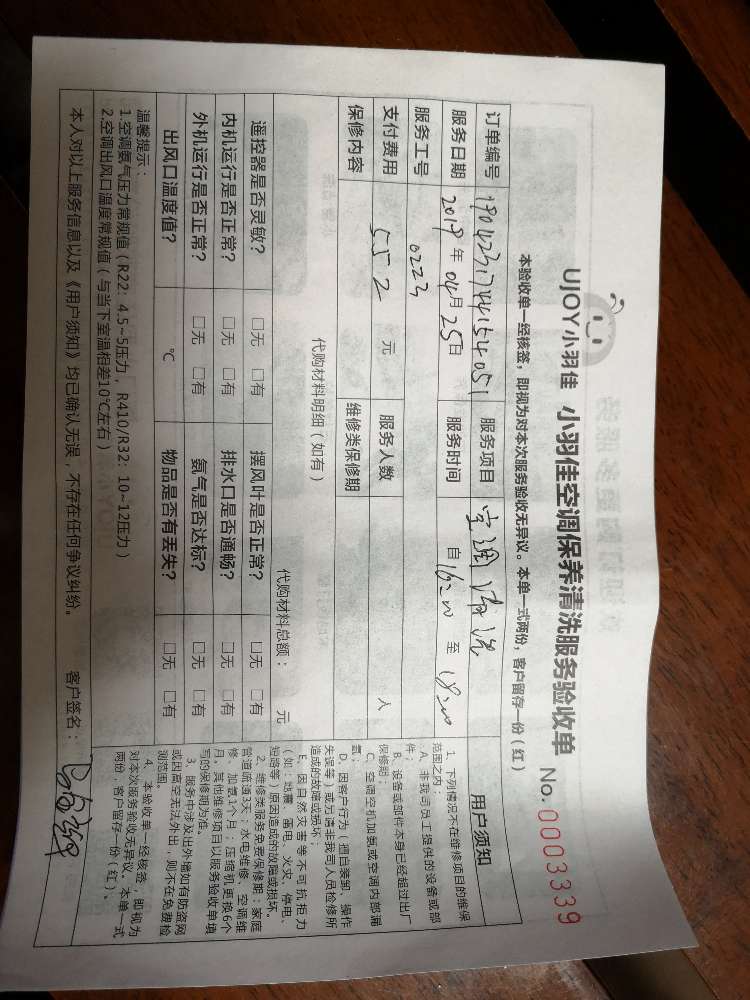 UJOY小羽佳 小羽佳空调保养清洗服务验收单 No. 0003339
本验收单一经核签，即视为对本次服务验收无异议。本单一式两份，客户留存一份（红）
订单编号 服务项目 空调清洗
服务日期 2019年04月25日 服务时间 自16:00至18:00
服务工号 0223
支付费用 552 元 服务人数 人
保修内容 维修类保修期
代购材料明细（如有） 代购材料总额： 元
遥控器是否灵敏？ □无 □有 摆风叶是否正常？ □无 □有
内机运行是否正常？ □无 □有 排水口是否通畅？ □无 □有
外机运行是否正常？ □无 □有 氨气是否达标？ □无 □有
出风口温度值？ ℃ 物品是否有丢失？ □无 □有
温馨提示：
1.空调氨气压力常规值（R22：4.5~5压力，R410/R32：10~12压力）
2.空调出风口温度常规值（与当下室温相差10℃左右）
本人对以上服务信息以及《用户须知》均已确认无误，不存在任何争议纠纷。 客户签名：
用户须知
1、下列情况不在维修项目的维保
范围之内：
A、非我司员工提供的设备或部
件；
B、设备或部件本身已经超过出厂
保修期；
C、空调空机加氨或空调内部漏
氨；
D、因客户行为（擅自装卸、操作
失误等）或允请非我司人员检修所
造成的故障或损坏；
E、因自然灾害等不可抗拒力
（如：地震、雷电、火灾、停电、
短路等）原因造成的故障或损坏。
2、维修类服务免费保修期：家庭
管道疏通3天；水电维修、空调维
修、加氨1个月；压缩机更换6个
月。其他维修项目以服务验收单填
写的保修期为准。
3、服务中涉及出外墙如有防盗网
或因高空无法外出，则不在免费检
测范围。
4、本验收单一经核签，即视为
对本次服务验收无异议。本单一式
两份，客户留存一份（红）、